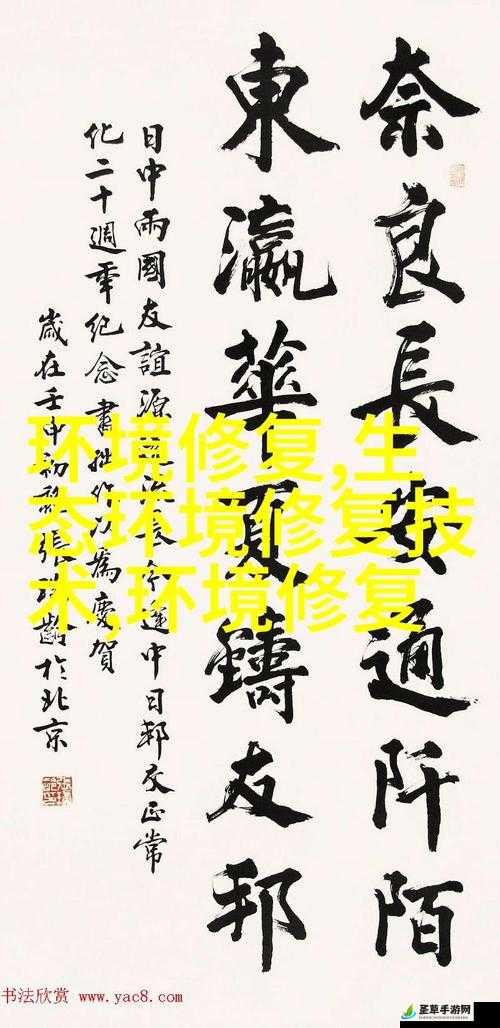 奈良長安通阡陌
東瀛華夏鑄友邦
日中兩國友誼源遠流長今逢中日邦交正常
化二十週年紀念書拙作以為慶賀
歲在壬申初張齡於北京
环境修复,生
态环境修复技
术,环境修复
书法欣赏 www.yac8.com
圣草手游网